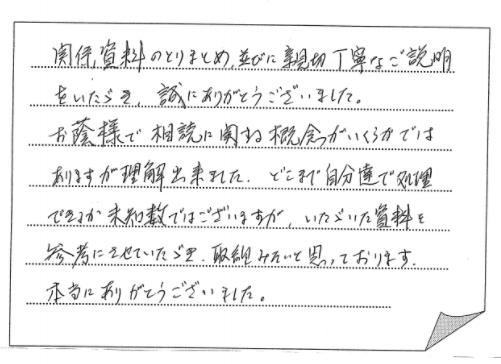 関係資料のとりまとめ、並びに親切丁寧なご説明
をいただき、誠にありがとうございました。
お蔭様で相談に関する概念がいくらかでは
ありますが理解出来ました。どこまで自分達で処理
できるか未知数ではございますが、いただいた資料を
参考にさせていただき、取組みたいと思っております。
本当にありがとうございました。